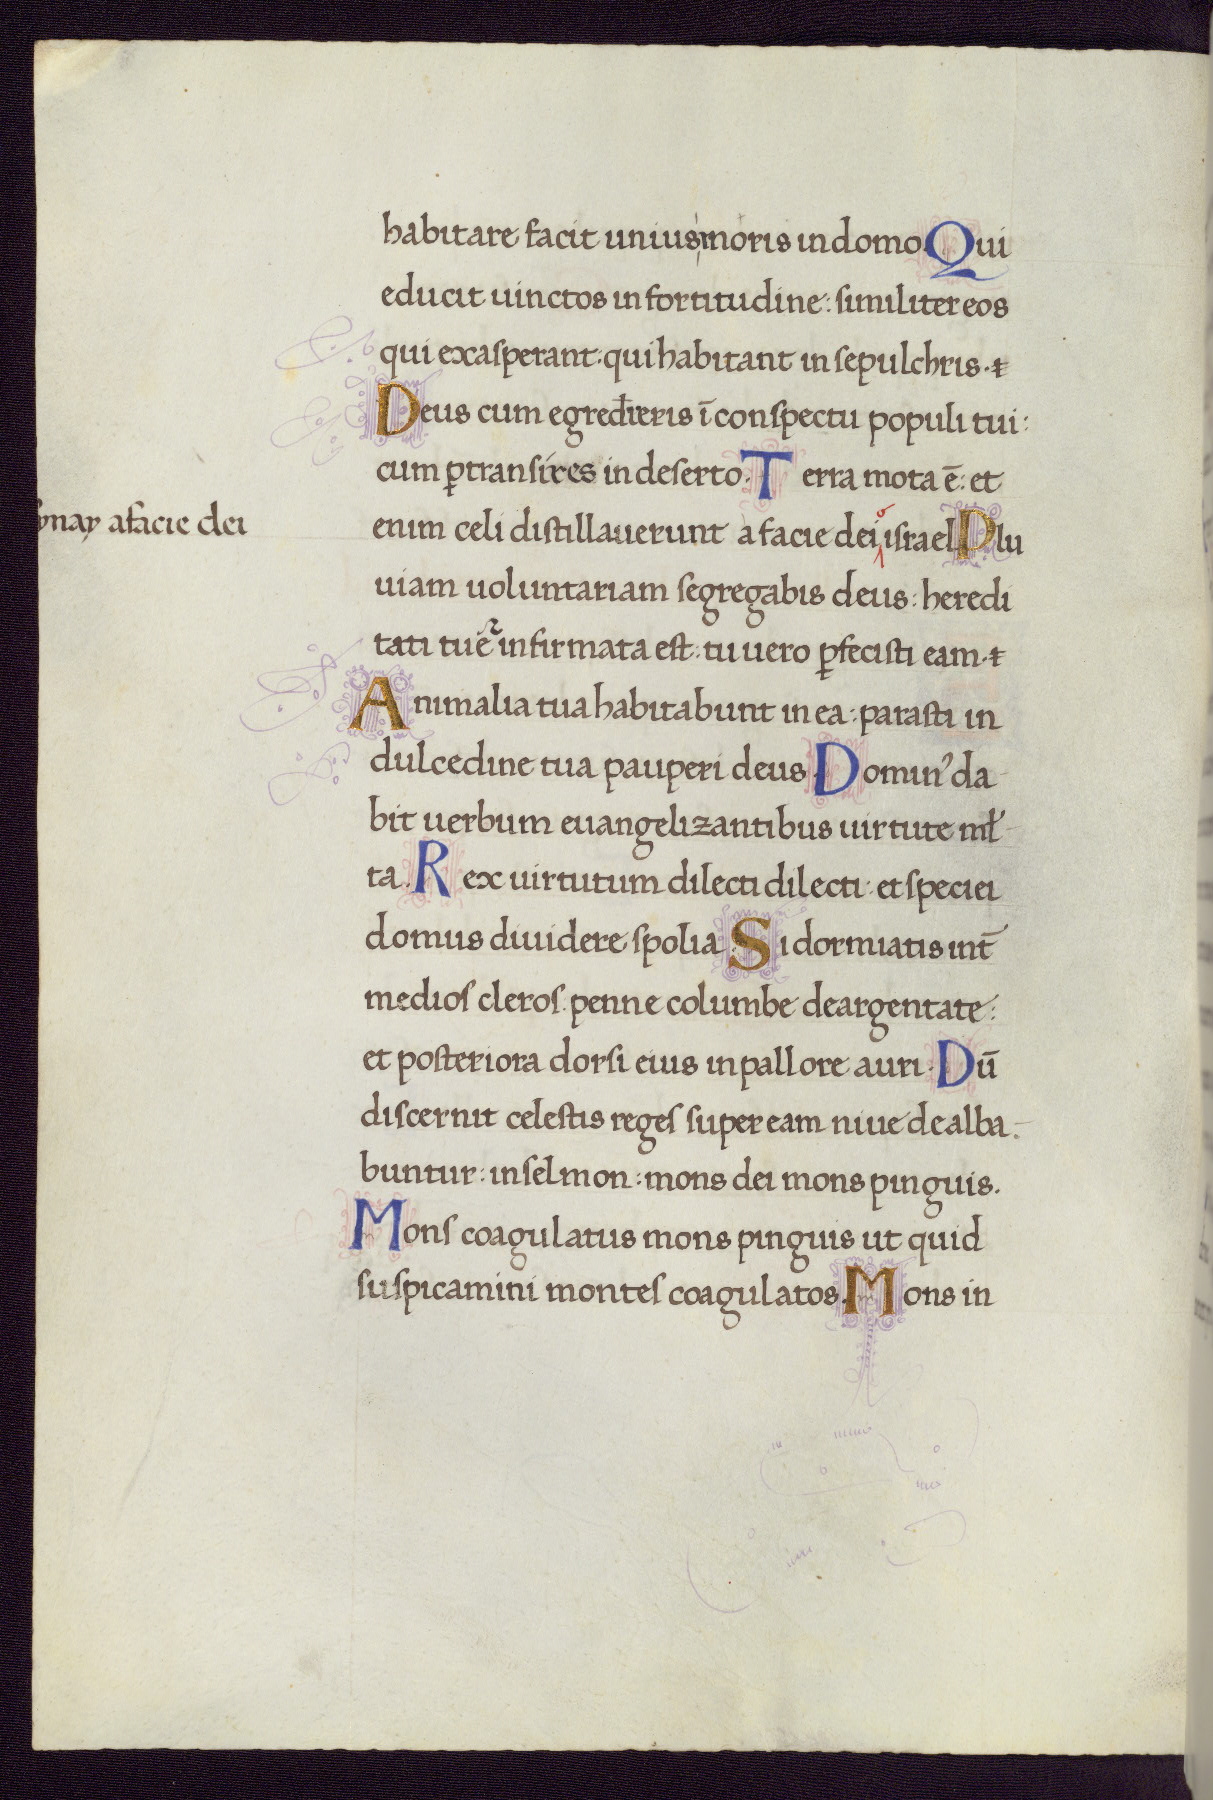 habitare facit unius moris in domo. Qui
educit uinctos in fortitudine: similiter eos
qui exasperant: qui habitant in sepulchris. ⁊
Deus cum egredieris ī conspectu populi tui:
cum ꝑtransires in deserto. Terra mota ē: et
synay a facie dei
enim celi distillauerunt a facie dei israel. Plu
uiam uoluntariam segregabis deus: heredi
tati tue ⁊ infirmata est: tu uero ꝑfecisti eam. ⁊
Animalia tua habitabunt in ea: parasti in
dulcedine tua pauperi deus. Domin᾽ da
bit uerbum euangelizantibus uirtute ml̄
ta. Rex uirtutum dilecti dilecti: et speciei
domus diuidere spolia. Si dormiatis int̄
medios cleros. penne columbe deargentate:
et posteriora dorsi eius in pallore auri. Dū
discernit celestis reges super eam niue dealba
buntur: in selmon: mons dei mons pinguis.
Mons coagulatus mons pinguis ut quid
suspicamini montes coagulatos. Mons in